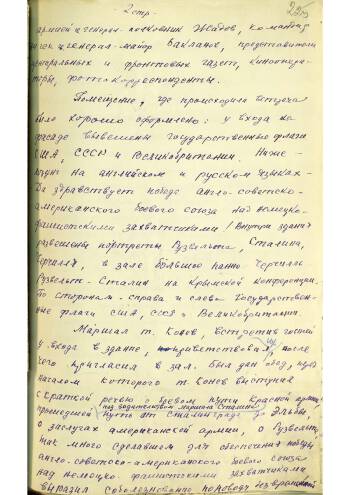 2 стр.
225
армией генерал-полковник Жадов, командир
генерал-майор Бакланов, представители
центральных и фронтовых газет, кинооперато-
ры, фотокорреспонденты.
Помещение, где происходила встреча
было хорошо оформлено: у входа на
фасаде вывешены государственные флаги
США, СССР и Великобритании. Ниже-
на английском и русском языках-
Да здравствует победа англо-советско-
американского боевого союза над немецко-
фашистскими захватчиками! Внутри здания
развешены портреты Рузвельта, Сталина,
Черчилля, в зале большое панно Черчилль
Рузвельт-Сталин на Крымской конференции.
По сторонам-справа и слева Государствен-
ные флаги США, СССР и Великобритании.
Маршал т. Конев, встретив гостей
у входа в здание, приветствовал их, после
чего пригласил в зал. Был дан обед, перед
началом которого т. Конев выступил
с краткой речью о боевом пути Красной армии,
под водительством маршала Сталина
прошедшей путь от Сталинграда до Эльбы,
о заслугах американской армии, о Рузвельте,
так много сделавшем для обеспечения победы
англо-советско-американского боевого союза
над немецко-фашистскими захватчиками
выразил соболезнование по поводу безвременной